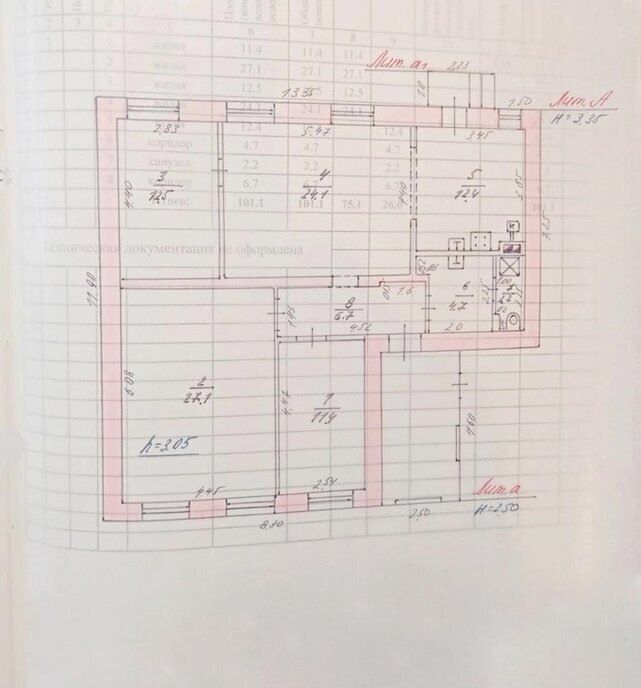 6 7 8 9
жилая 11.4 11.4 11.4
жилая 27.1 27.1 27.1
жилая 12.5 12.5
24.1 24.1 24.1
12.4 12.4
коридор 4.7 4.7 4.7
санузел 2.2 2.2 2.2
коридор 6.7 6.7
Итого: 101.1 101.1 75.1 26.0
техническая документация не оформлена
Лит. а1
2,23
20
13.35
1.50
Лит. А
H=3,35
2,83
5,47
3,45
3
12.5
4
24.1
5
12.4
4,40
4,40
3,85
7,25
11.90
6
4.7
2,25
2.0
1.45
8
6.7
1.6
4.52
6.08
2
27.1
4,47
1
11.4
h=3.05
4.45
2.54
7.60
Лит. а
H=2.50
8.80
2.50